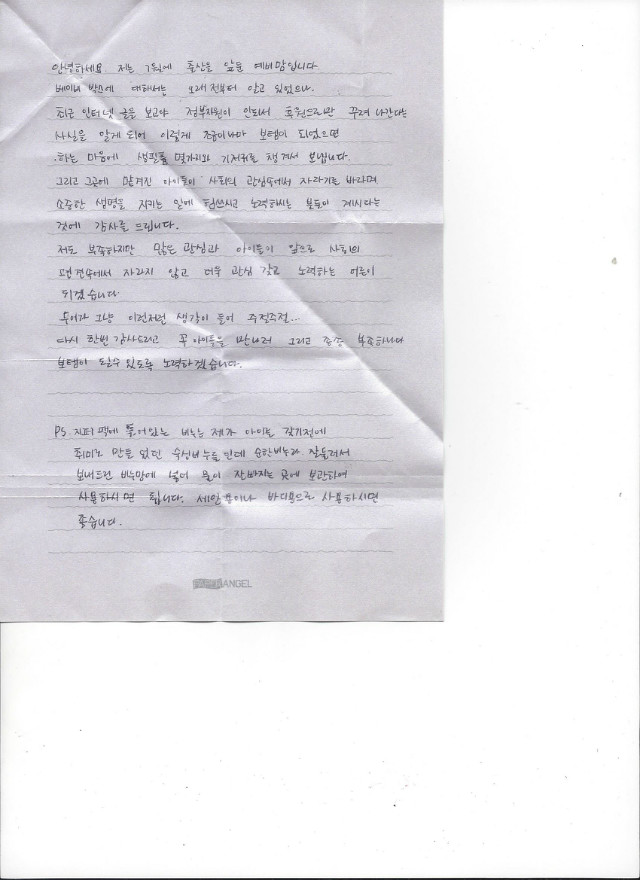 안녕하세요 저는 7월에 출산을 앞둔 예비맘입니다
베이비 박스에 대해서는 오래전부터 알고 있었으나.
최근 인터넷 글을 보고야 정부지원이 안되서 후원으로만 꾸려 나간다는
사실을 알게 되어 이렇게 조금이나마 보탬이 되었으면
하는 마음에 생필품 몇가지와 기저귀를 챙겨서 보냅니다.
그리고 그곳에 맡겨진 아이들이 사회의 관심속에서 자라기를 바라며
소중한 생명을 지키는 일에 힘쓰시고 노력하시는 분들이 계시다는
것에 감사를 드립니다.
저도 부족하지만 많은 관심과 아이들이 앞으로 사회의
편견속에서 자라지 않고 더욱 관심 갖고 노력하는 어른이
되겠습니다
두어가 그냥 이런저런 생각이 들어 주절주절...
다시 한번 감사드리고 꼭 아이들을 만나러 그리고 종종 부족하나마
보탬이 될수 있도록 노력하겠습니다.
PS. 지퍼 팩에 들어있는 비누는 제가 아이를 갖기전에
취미로 만들었던 숙성비누들인데 순한비누라 잘물러서
보내드린 비누망에 넣어 물이 잘빠지는 곳에 보관하여
사용하시면 됩니다. 세안용이나 바디용으로 사용하시면
좋습니다.
ANGEL